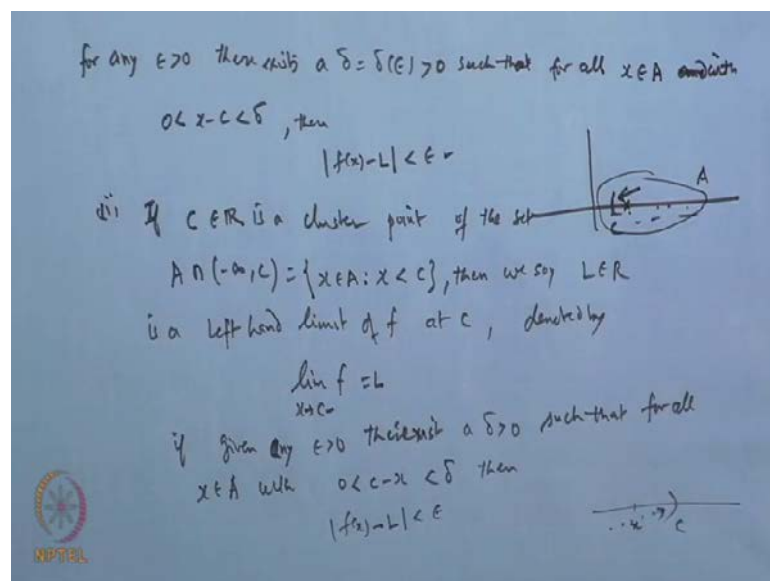 for any ε>0 there exists a δ = δ(ε) >0 such that for all x ∈ A and with
0 < x-c < δ , then
|f(x)-L| < ε
A
c
(ii) If c ∈ R is a cluster point of the set
A ∩ (-∞, c) = {x ∈ A : x < c}, then we say L ∈ R
is a left hand limit of f at c , denoted by
lim f = L
x→c-
if given any ε>0 there exist a δ>0 such that for all
x ∈ A with 0 < c-x < δ then
|f(x)-L| < ε
x c
NPTEL